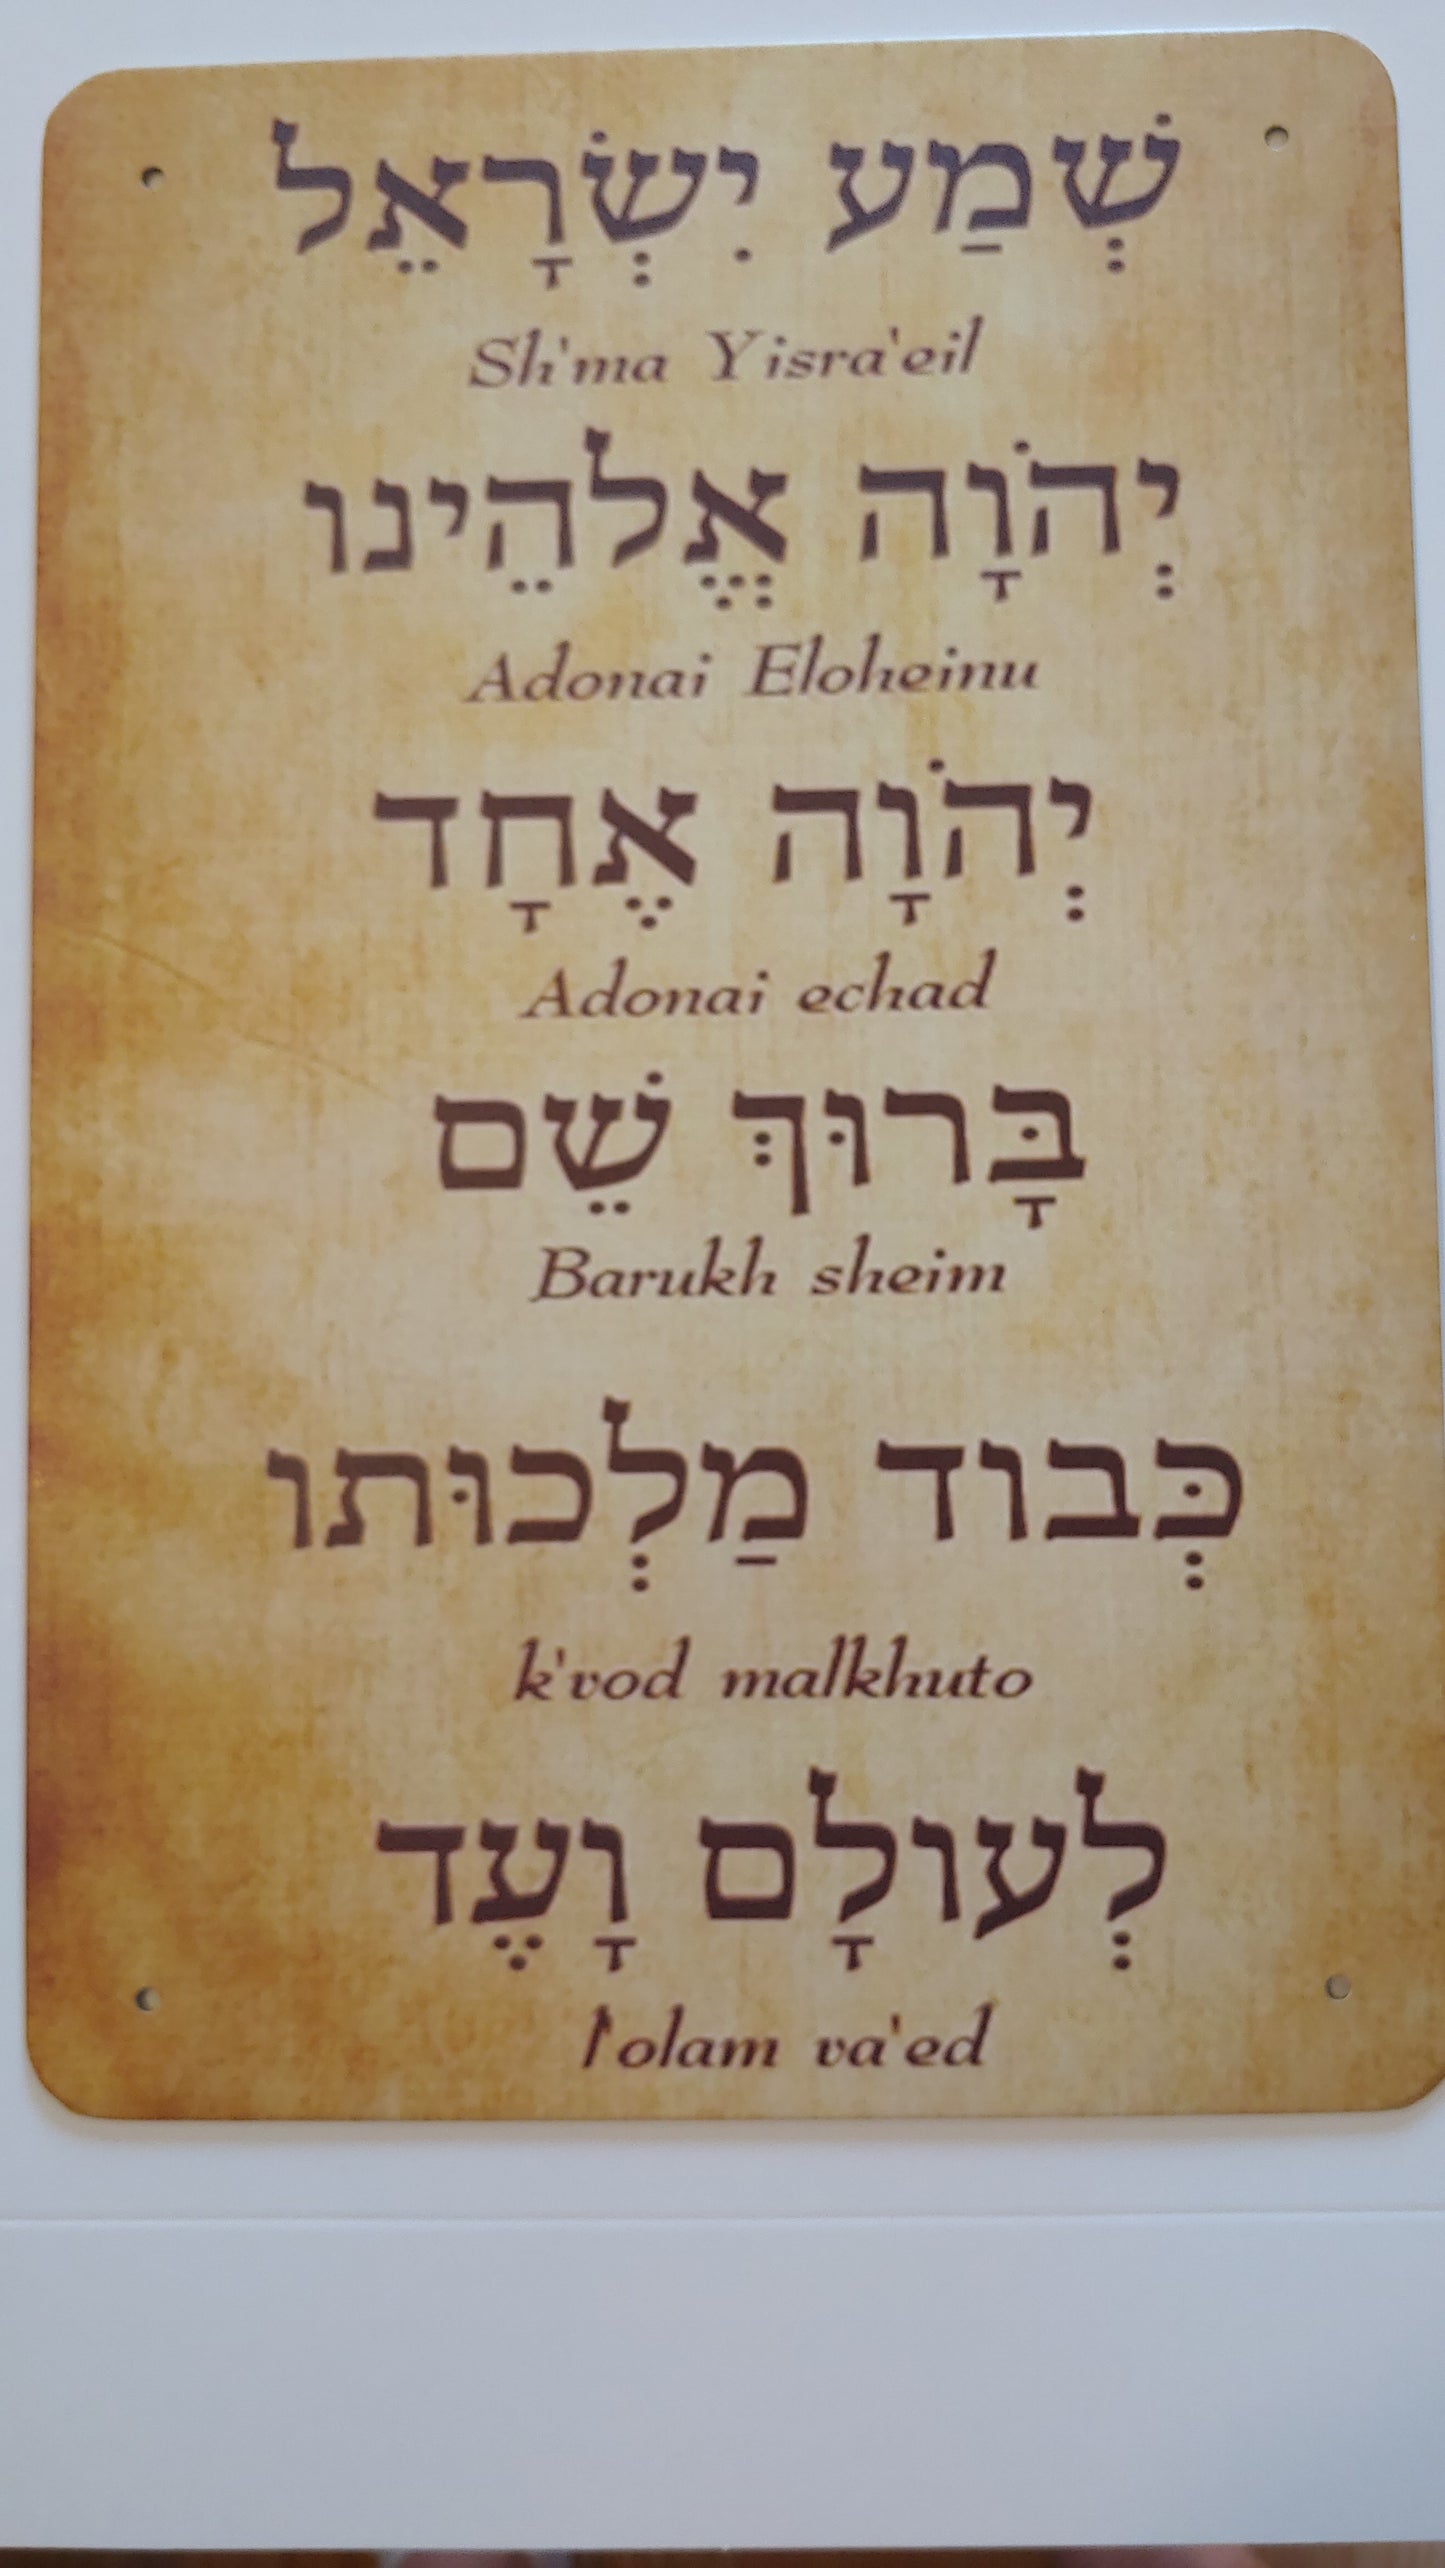 שְׁמַע יִשְׂרָאֵל
Sh'ma Yisra'eil
יְהֹוָה אֱלֹהֵינוּ
Adonai Eloheinu
יְהֹוָה אֶחָד
Adonai echad
בָּרוּךְ שֵׁם
Barukh sheim
כְּבוד מַלְכוּתו
k'vod malkhuto
לְעולָם וָעֶד
l'olam va'ed